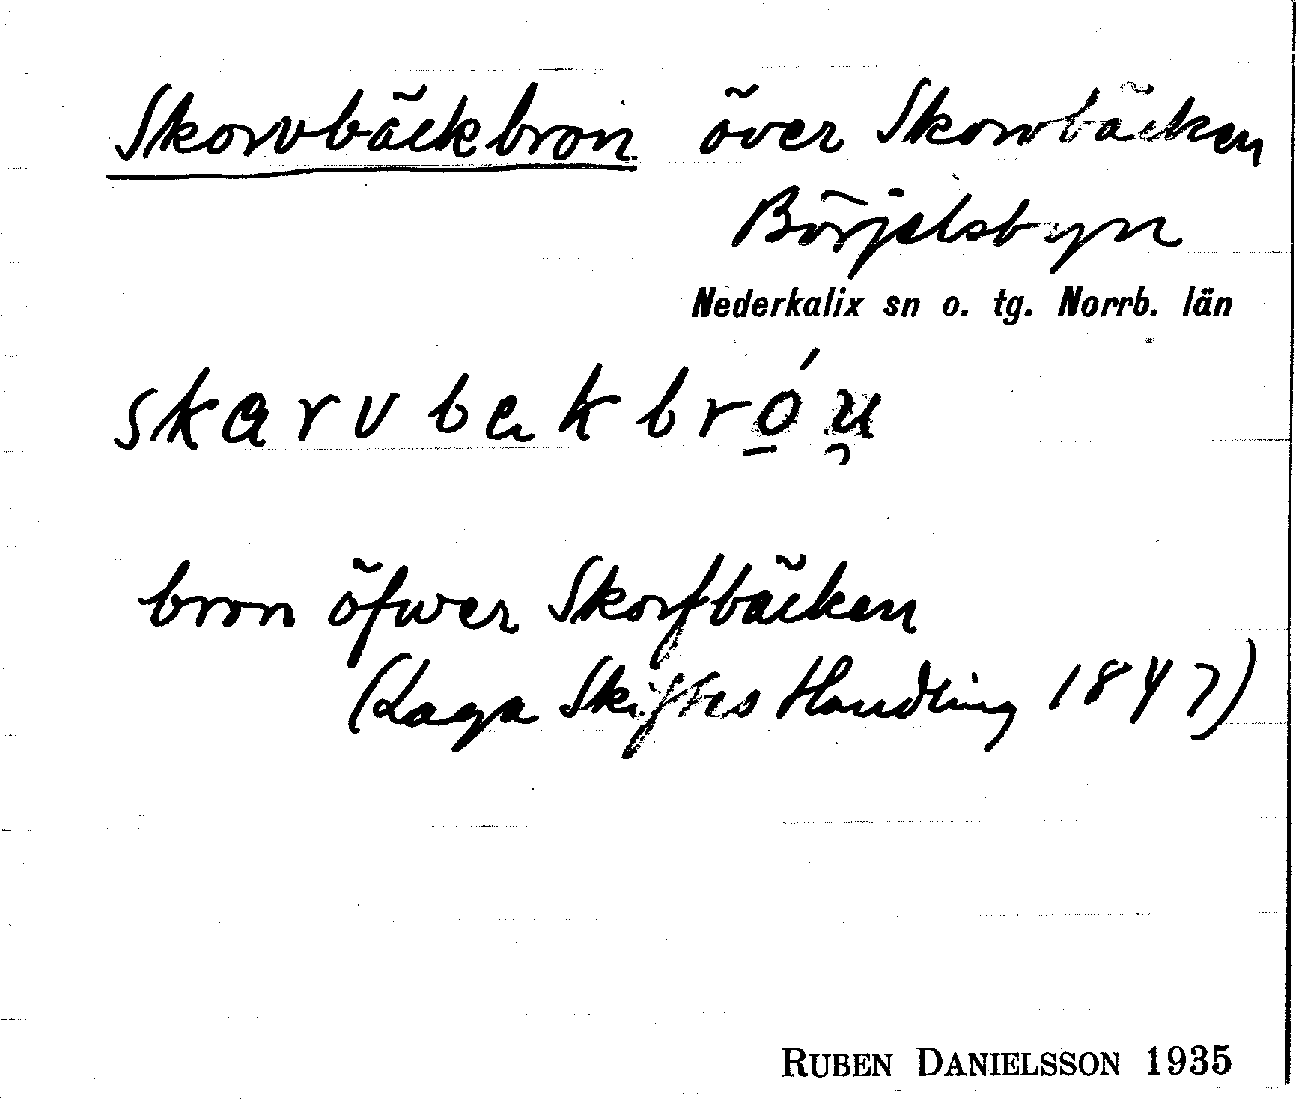 Skorvbäckbron över Skorvbäcken
Börjelsbyn
Nederkalix sn o. tg. Norrb. län
skarvbekbró̠n̥
bron öfwer Skorfbäcken
(Laga Skiftes Handling 1847)
RUBEN DANIELSSON 1935